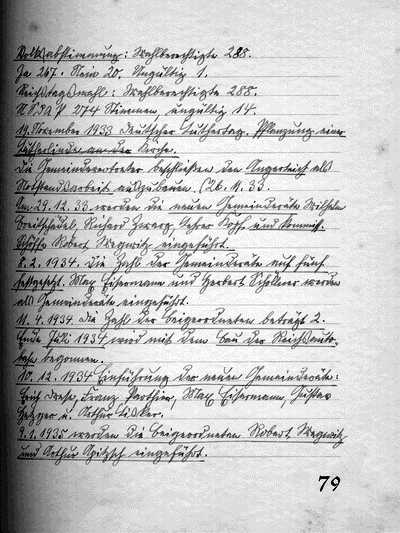 Volksabstimmung: Wahlberechtigte 288.
Ja 267. Nein 20. Ungültig 1.
Reichstagswahl: Wahlberechtigte 288.
NSDAP 274 Stimmen, ungültig 14.
19. November 1933 Deutscher Luthertag. Pflanzung einer
Lutherlinde an der Kirche.
Die Gemeindevertreter beschließen den Angerteich als
Notstandsarbeit auszubauen. (26. 11. 33.
Am 29. 12. 33 werden die neuen Gemeinderäte Wilhelm
Breitschädel, Richard Lehrer und kommiss.
Schöffe Robert Wegwitz eingeführt.
8. 2. 1934. Die Zahl der Gemeinderäte auf fünf
festgesetzt. Max Eisermann und Herbert Schöllner werden
als Gemeinderäte eingeführt.
11. 4. 1934 Die Zahl der Beigeordneten beträgt 2.
Ende Juli 1934 wird mit dem Bau der Reichsauto-
bahn begonnen.
10. 12. 1934 Einführung der neuen Gemeinderäte:
Franz Max Eisermann, Gustav
u. Arthur
9. 1. 1935 werden die Beigeordneten Robert Wegwitz
und Arthur eingeführt.
79